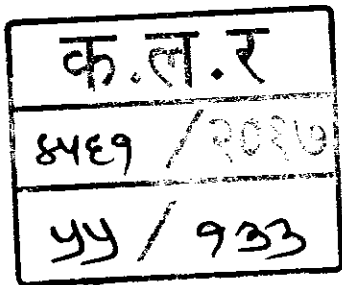 क.ल.र
४५६१ / २०१७
५५ / १३३